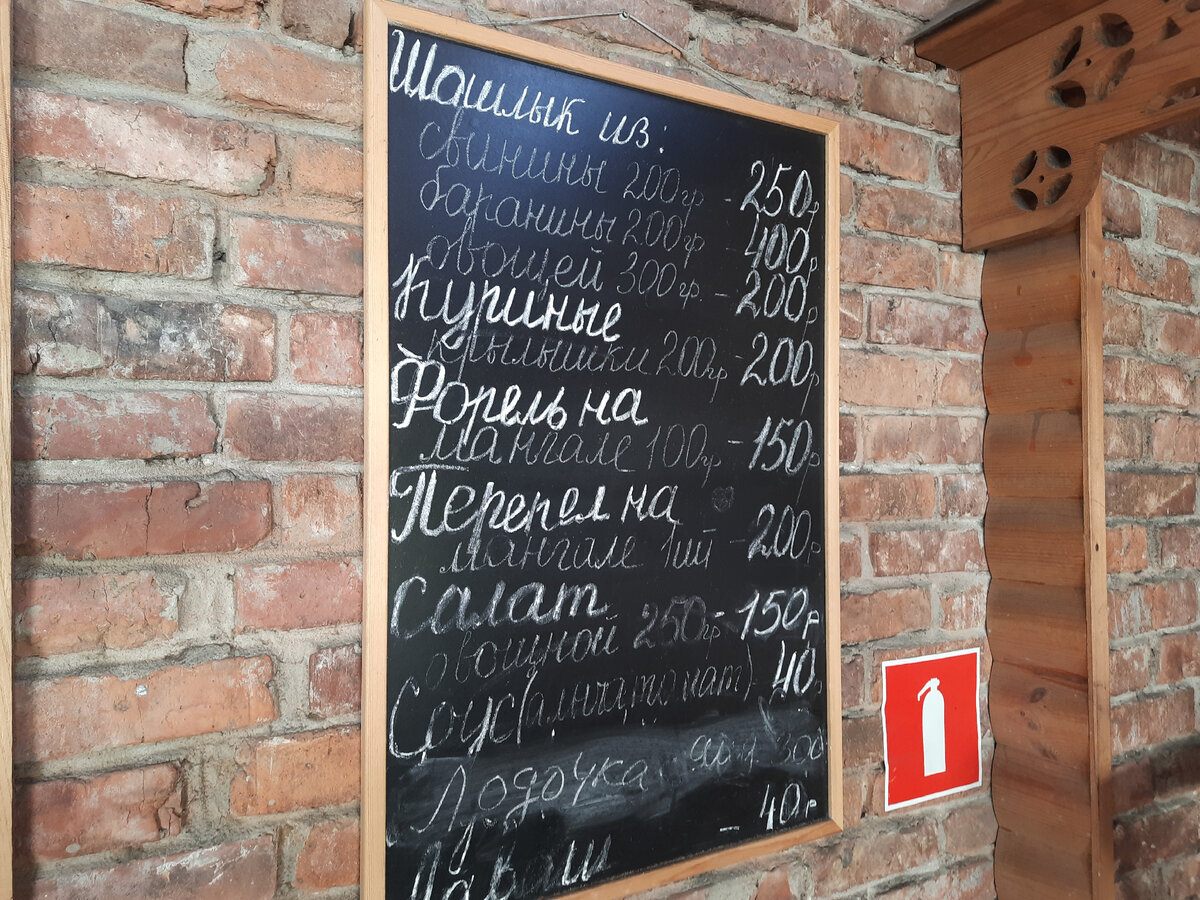 Шашлык из:
свинины 200гр - 250р
баранины 200гр - 400р
овощей 300гр. - 200р
Куриные
крылышки 200гр - 200р
Форель на
мангале 100гр - 150р
Перепел на
мангале 1шт - 200р
Салат
овощной 250гр - 150р
Соус (алыча, томат) 40р
Лодочка 300
Лаваш - 40р